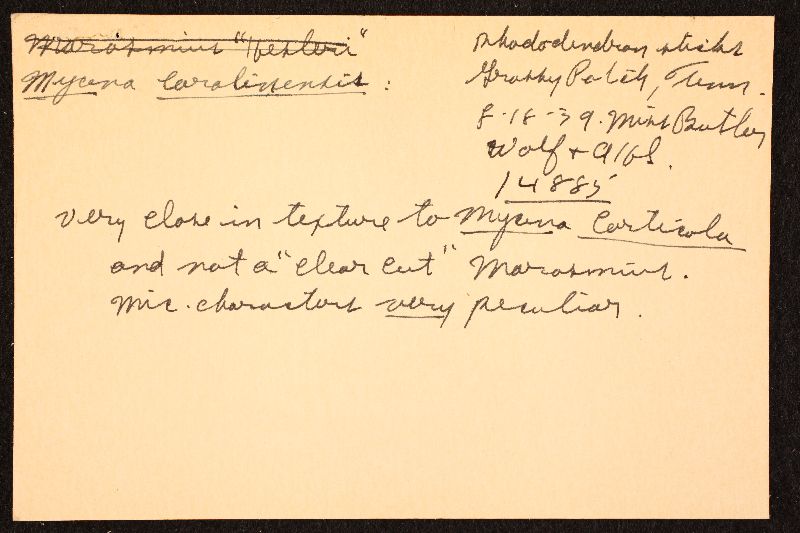 Marasmius "Hesleri"
Mycena Carolinensis:
Rhododendron sticks
Grassy Patch, Tenn.
8-18-39. Miss Butler
Wolf +
14885
very close in texture to Mycena Corticola
and not a "clear cut" Marasmius.
Mic. characters very peculiar.